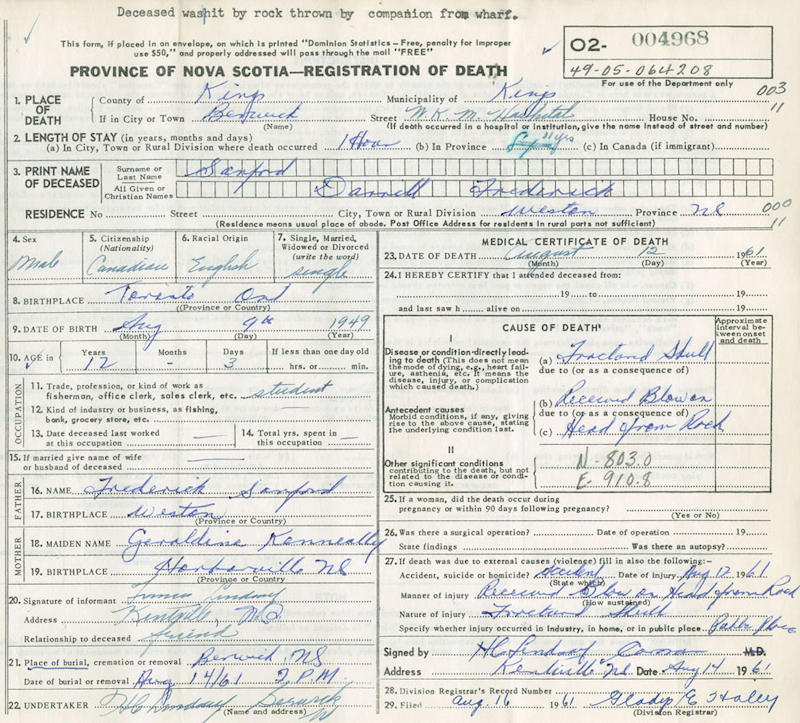 Deceased was hit by rock thrown by companion from wharf.
This form, if placed in an envelope, on which is printed "Dominion Statistics – Free, penalty for improper
use $50," and properly addressed will pass through the mail "FREE"
02- 004968
49-05-064208
For use of the Department only
PROVINCE OF NOVA SCOTIA—REGISTRATION OF DEATH
003
11
1. PLACE OF DEATH County of Kings Municipality of Kings
If in City or Town Berwick Street W.K.M. Hospital House No.
(Name) (If death occurred in a hospital or institution, give the name instead of street and number)
2. LENGTH OF STAY (in years, months and days)
(a) In City, Town or Rural Division where death occurred 1 Hour (b) In Province 11 yrs (c) In Canada (if immigrant)
3. PRINT NAME OF DECEASED Surname or Last Name Sanford
All Given or Christian Names Darrell Frederick
RESIDENCE No Street City, Town or Rural Division Weston Province NS
000
11
(Residence means usual place of abode. Post Office Address for residents in rural parts not sufficient)
4. Sex Male
5. Citizenship (Nationality) Canadian
6. Racial Origin English
7. Single, Married, Widowed or Divorced (write the word) single
8. BIRTHPLACE Toronto Ont
(Province or Country)
9. DATE OF BIRTH Aug 9th 1949
(Month) (Day) (Year)
10. AGE in Years 12 Months - Days 3 If less than one day old hrs. or min.
OCCUPATION
11. Trade, profession, or kind of work as fisherman, office clerk, sales clerk, etc. student
12. Kind of industry or business, as fishing, bank, grocery store, etc. —
13. Date deceased last worked at this occupation — 14. Total yrs. spent in this occupation —
15. If married give name of wife or husband of deceased —
FATHER
16. NAME Frederick Sanford
17. BIRTHPLACE Weston
(Province or Country)
MOTHER
18. MAIDEN NAME Geraldine Kenneally
19. BIRTHPLACE Harborville NS
(Province or Country)
20. Signature of informant Lindsay
Address Kentville, N.S.
Relationship to deceased friend
21. Place of burial, cremation or removal Berwick, NS
Date of burial or removal Aug 14/61 2 P.M.
22. UNDERTAKER H C Lindsay Berwick
(Name and address)
MEDICAL CERTIFICATE OF DEATH
23. DATE OF DEATH August 12 1961
(Month) (Day) (Year)
24. I HEREBY CERTIFY that I attended deceased from:
19 to 19
and last saw h alive on 19
CAUSE OF DEATH
Approximate interval between onset and death
I
Disease or condition directly leading to death (This does not mean the mode of dying, e.g., heart failure, asthenia, etc. It means the disease, injury, or complication which caused death.)
(a) Fractured Skull
due to (or as a consequence of)
Antecedent causes
Morbid conditions, if any, giving rise to the above cause, stating the underlying condition last.
(b) Received Blow on
due to (or as a consequence of)
(c) Head from Rock
II
Other significant conditions contributing to the death, but not related to the disease or condition causing it.
N-803.0
E-910.8
25. If a woman, did the death occur during pregnancy or within 90 days following pregnancy?
(Yes or No)
26. Was there a surgical operation? Date of operation 19
State findings Was there an autopsy?
27. If death was due to external causes (violence) fill in also the following:—
Accident, suicide or homicide? Accident Date of injury Aug 12 1961
(State which)
Manner of injury Received Blow on Head from Rock
(How sustained)
Nature of injury Fractured Skull
Specify whether injury occurred in industry, in home, or in public place Public Place
Signed by H C Lindsay M.D.
Address Kentville NS Date Aug 14 1961
28. Division Registrar's Record Number
29. Filed Aug 16 1961 Gladys E
(Division Registrar)